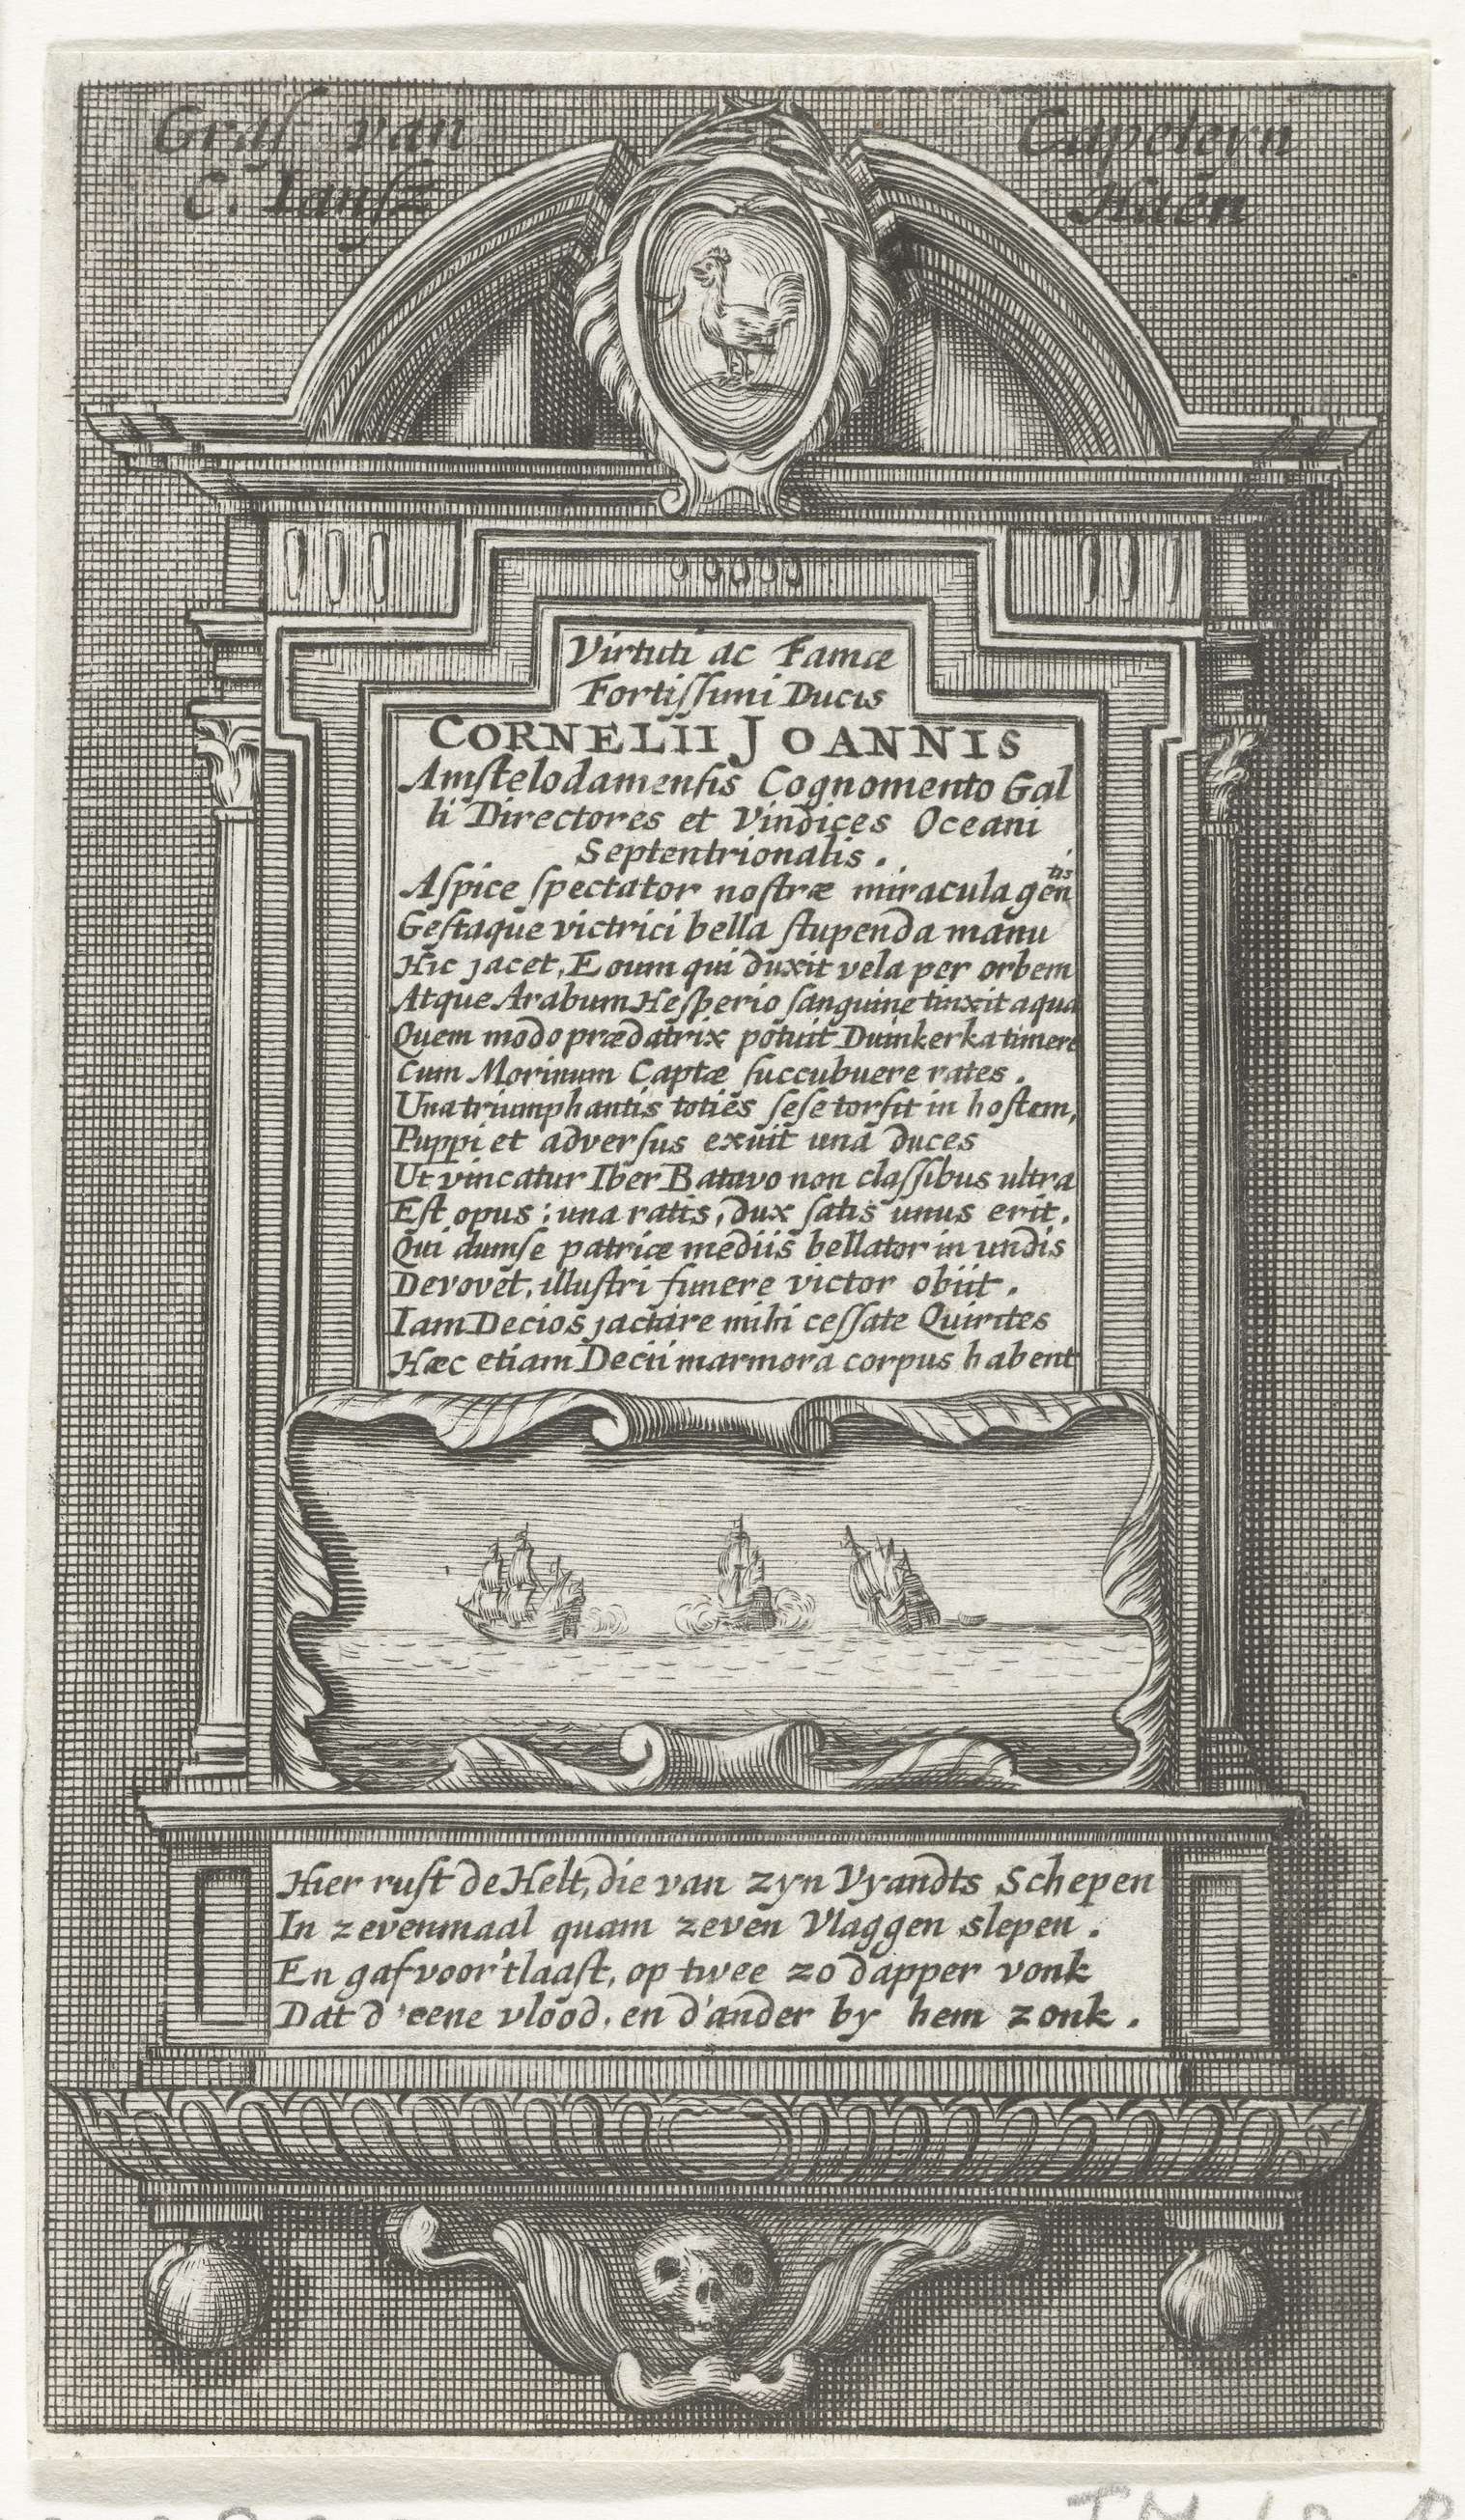 Graf van Capeteyn
C. Ianſz Haen
Virtuti ac Famæ
Fortiſſimi Ducis
CORNELII JOANNIS
Amſtelodamenſis Cognomento Gal
li Directores et Vindices Oceani
Septentrionalis.
Aſpice ſpectator noſtræ miracula gentis
Geſtaque victrici bella ſtupenda manu
Hic jacet, Eoum qui duxit vela per orbem
Atque Arabum Heſperio ſanguine tinxit aqua
Quem modo prædatrix potuit Duinkerka timere
Cum Morinum Captæ ſuccubuere rates.
Una triumphantis toties ſeſe torſit in hoſtem,
Puppi et adverſus exuit una duces
Ut vincatur Iber Batavo non claſſibus ultra
Eſt opus; una ratis, dux ſatis unus erit.
Qui dum ſe patriæ mediis bellator in undis
Devovet, illuſtri funere victor obiit.
Iam Decios jactare mihi ceſſate Quirites
Hæc etiam Decii marmora corpus habent
Hier ruſt de Helt, die van zyn Vyandts Schepen
In zevenmaal quam zeven Vlaggen slepen.
En gaf voor'tlaaſt, op twee zo dapper vonk
Dat d'eene vlood, en d'ander by hem zonk.